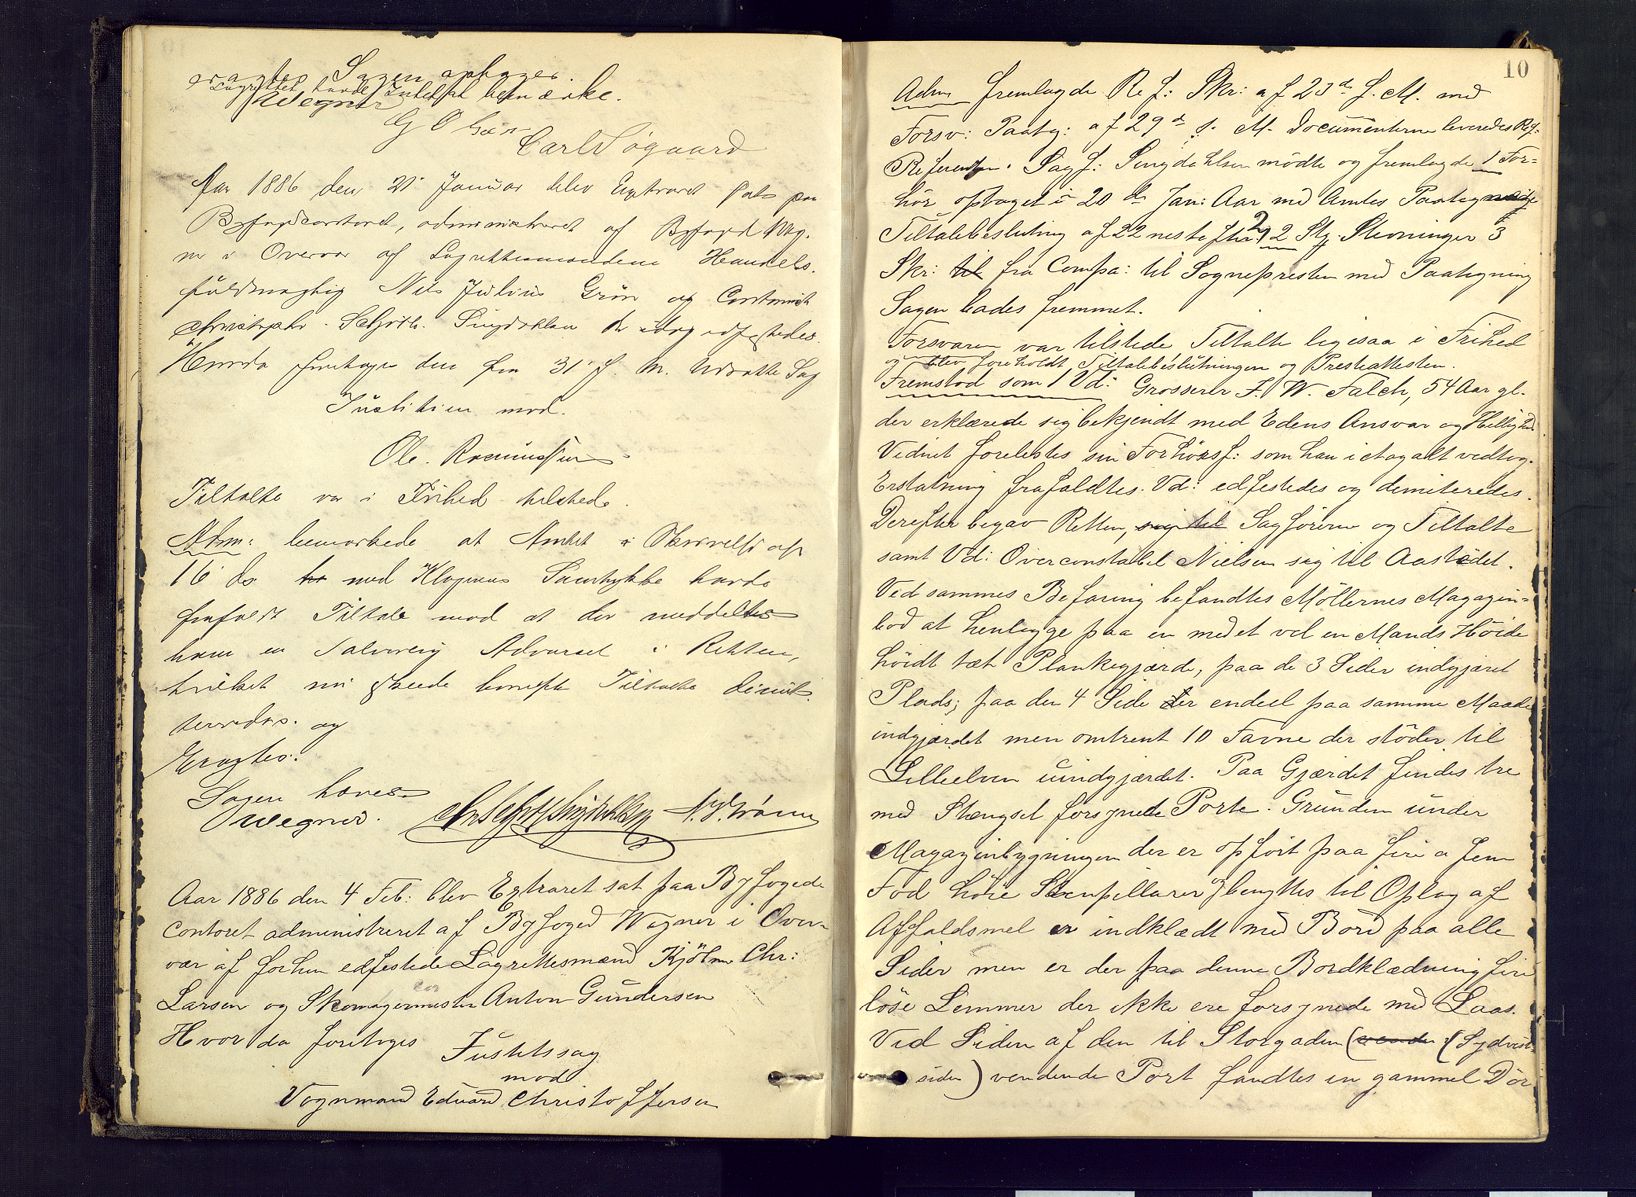 eragtes Sagen optages.
Lagrettet havde Intet at bemærke.
Wegner
G O
Carl Søgaard
Aar 1886 den 21 Januar blev Extraret sat paa
Byfogdcontoret, administreret af Byfogd Weg-
ner i Overvær af Lagrettesmændene Handels-
fuldmægtig Nils Julius Grøn og Contorist
Christopher Schjøth Singdahlsen der idag edfestedes.
Hvorda foretoges den fra 31 f. M. udsatte Sag
Justitien mod.
Ole Rasmussen
Tiltalte var i Frihed tilstede.
Adm: bemærkede at Amtet i Skrivelse af
16 ds med Klagerens Samtykke havde
frafaldt Tiltale mod at der meddeltes
ham en alvorlig Advarsel i Retten,
hvilket nu skeede hvorefter Tiltalte dimit-
teredes. og
Eragtes:
Sagen hæves
Wegner. N. J. Grønn
Aar 1886 den 4 Feb: blev Extraret sat paa Byfogede
contoret administreret af Byfoged Wegner i Over-
vær af forhen edfestede Lagrettesmænd Kjöbm Chr:
Larsen og Skomagermester Anton Gundersen
Hvor da foretoges Justitssag
mod
Vognmand Edvard Christoffersen
10
Adm fremlagde Rq f: Skr: af 23de f. M. med
Forsv: Paateg: af 29de s. M. Documenterne leveredes Rq f.
Referenten. Sagf: Singdahlsen mødte og fremlagde 1 For=
hör optaget i 20de Jan: Aar med Amtes Paategning
Tiltalebeslutning af 22 nestefter 2 2 Stk. Stevninger 3
Skr: til fra Compa: til Sognepresten med Paategning
Sagen bades fremmet.
Forsvaren var tilstede Tiltalte ligesaa i Frihed
og blev foreholdt Tiltalebeslutningen og Presteattesten.
Fremstod som 1 Vd: Grosserer F. W. Falch, 54 Aar gl.
der erklærede sig bekjendt med Edens Ansvar og Hellighed.
Vidnet forelestes sin Forhörsf: som han i et og alt vedtog.
Erstatning frafaldtes. Vd: edfestedes og demiteredes.
Derefter begav Retten, sig til Sagførerne og Tiltalte
samt Vd: Overconstabel Nielsen sig til Aastedet.
Ved sammes Befaring befandtes Möllernes Magazin=
bod at henligge paa en med et vel en Mands Höide
höidt tæt Plankegjærd, paa de 3 Sider indgjæret
Plads; paa den 4 Side er endeel paa samme Maade
indgjærdet men omtrent 10 Favne der stöder til
Lilleelven uindgjærdet. Paa Gjærdet findes tre
med Stængsel forsynede Porte. Grunden under
Magazinbygningen der er opfört paa fire a fem
Fod höie Stenpillarer & benyttes til Oplag af
Affaldsmel er indklædt med Bord paa alle
Sider men er der paa denne Bordklædning fire
löse Lemmer der ikke ere forsynede med Laas.
Ved Siden af den til Storgaden (vende (Sydvest-
siden) vendende Port fandtes en gammel Dör